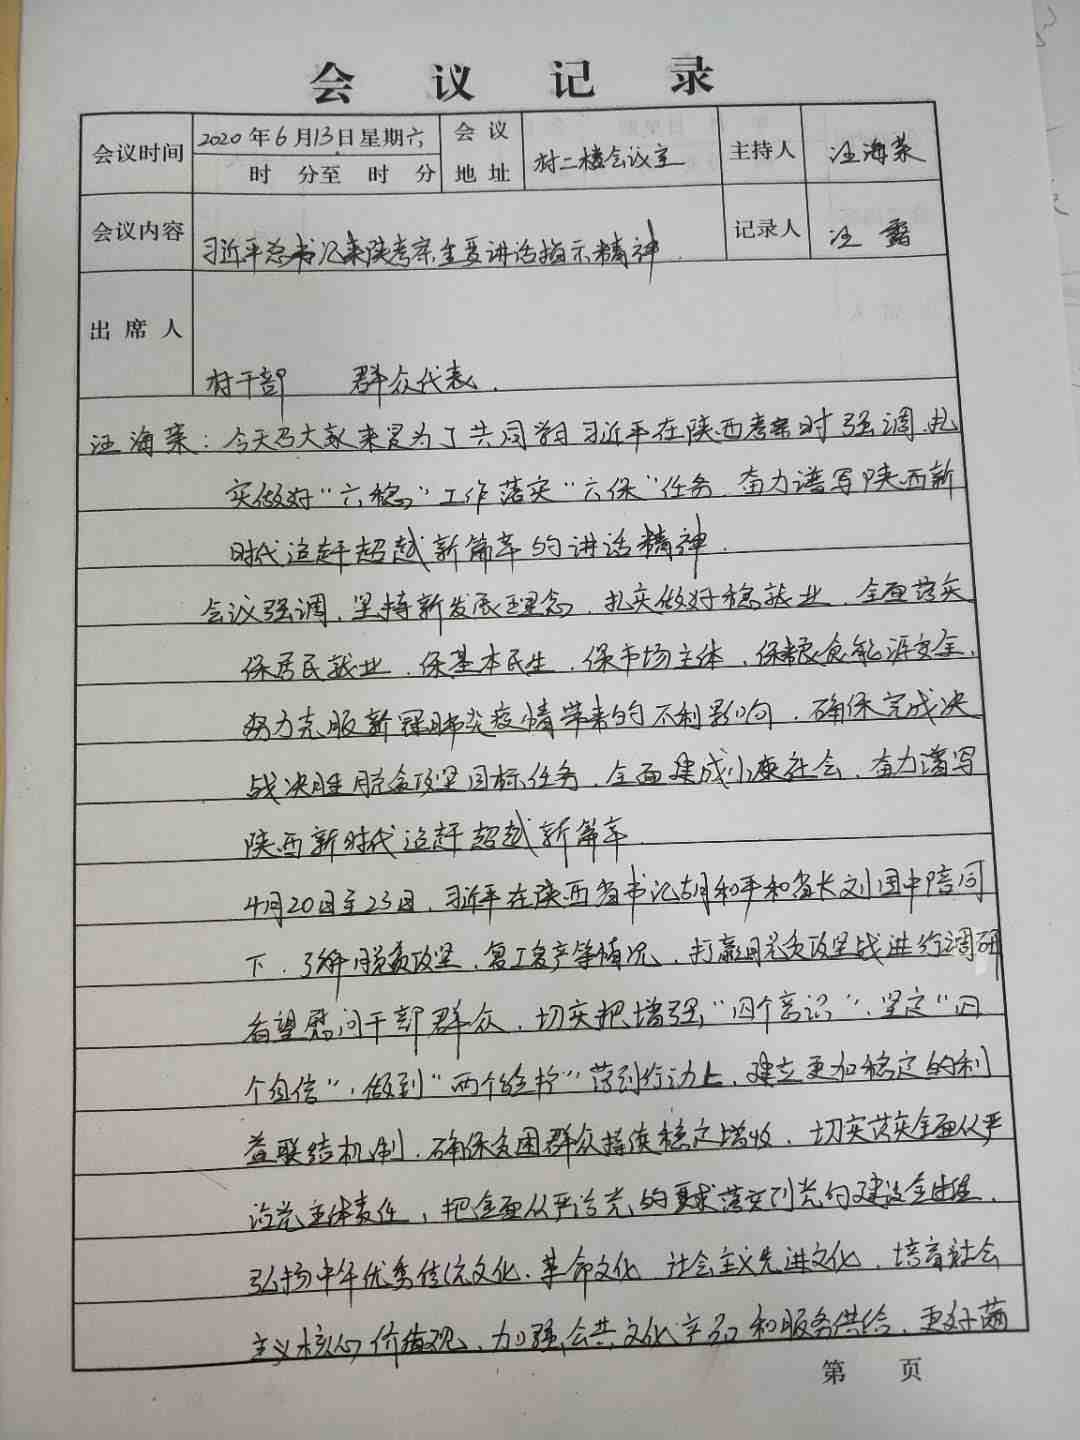 会议记录
会议时间 2020年6月13日星期六 会议 地址 村二楼会议室 主持人 汪海荣
时 分至 时 分
会议内容 习近平总书记来陕考察重要讲话指示精神. 记录人 汪露
出席人 村干部 群众代表.
汪海荣:今天召大家来是为了共同学习习近平在陕西考察时强调,扎
实做好"六稳"工作落实"六保"任务,奋力谱写陕西新
时代追赶超越新篇章的讲话精神.
会议强调,坚持新发展理念,扎实做好稳就业,全面落实
保居民就业,保基本民生,保市场主体,保粮食能源安全,
努力克服新冠肺炎疫情带来的不利影响,确保完成决
战决胜脱贫攻坚目标任务,全面建成小康社会,奋力谱写
陕西新时代追赶超越新篇章.
4月20日至23日,习近平在陕西省书记胡和平和省长刘国中陪同
下,了解脱贫攻坚,复工复产等情况,打赢脱贫攻坚战进行调研
看望慰问干部群众,切实把增强"四个意识",坚定"四
个自信",做到"两个维护"落到行动上,建立更加稳定的利
益联结机制,确保贫困群众持续稳定增收,切实落实全面从严
治党主体责任,把全面从严治党的要求落实到党的建设全过程,
弘扬中华优秀传统文化,革命文化 社会主义先进文化,培育社会
主义核心价值观,加强公共文化产品和服务供给,更好满
第 页